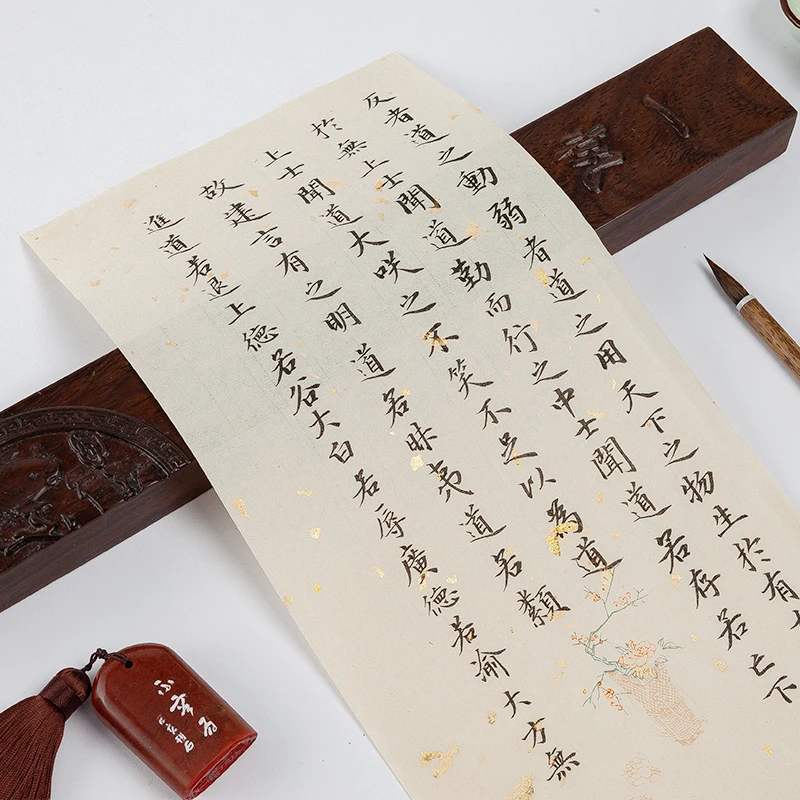 反者道之動弱者道之用天下之物生於有
於無上士聞道勤而行之中士聞道若存若亡下
上士聞道大咲之不笑不足以為道
故建言有之明道若昧夷道若類
進道若退上德若谷大白若辱廣德若渝大方無